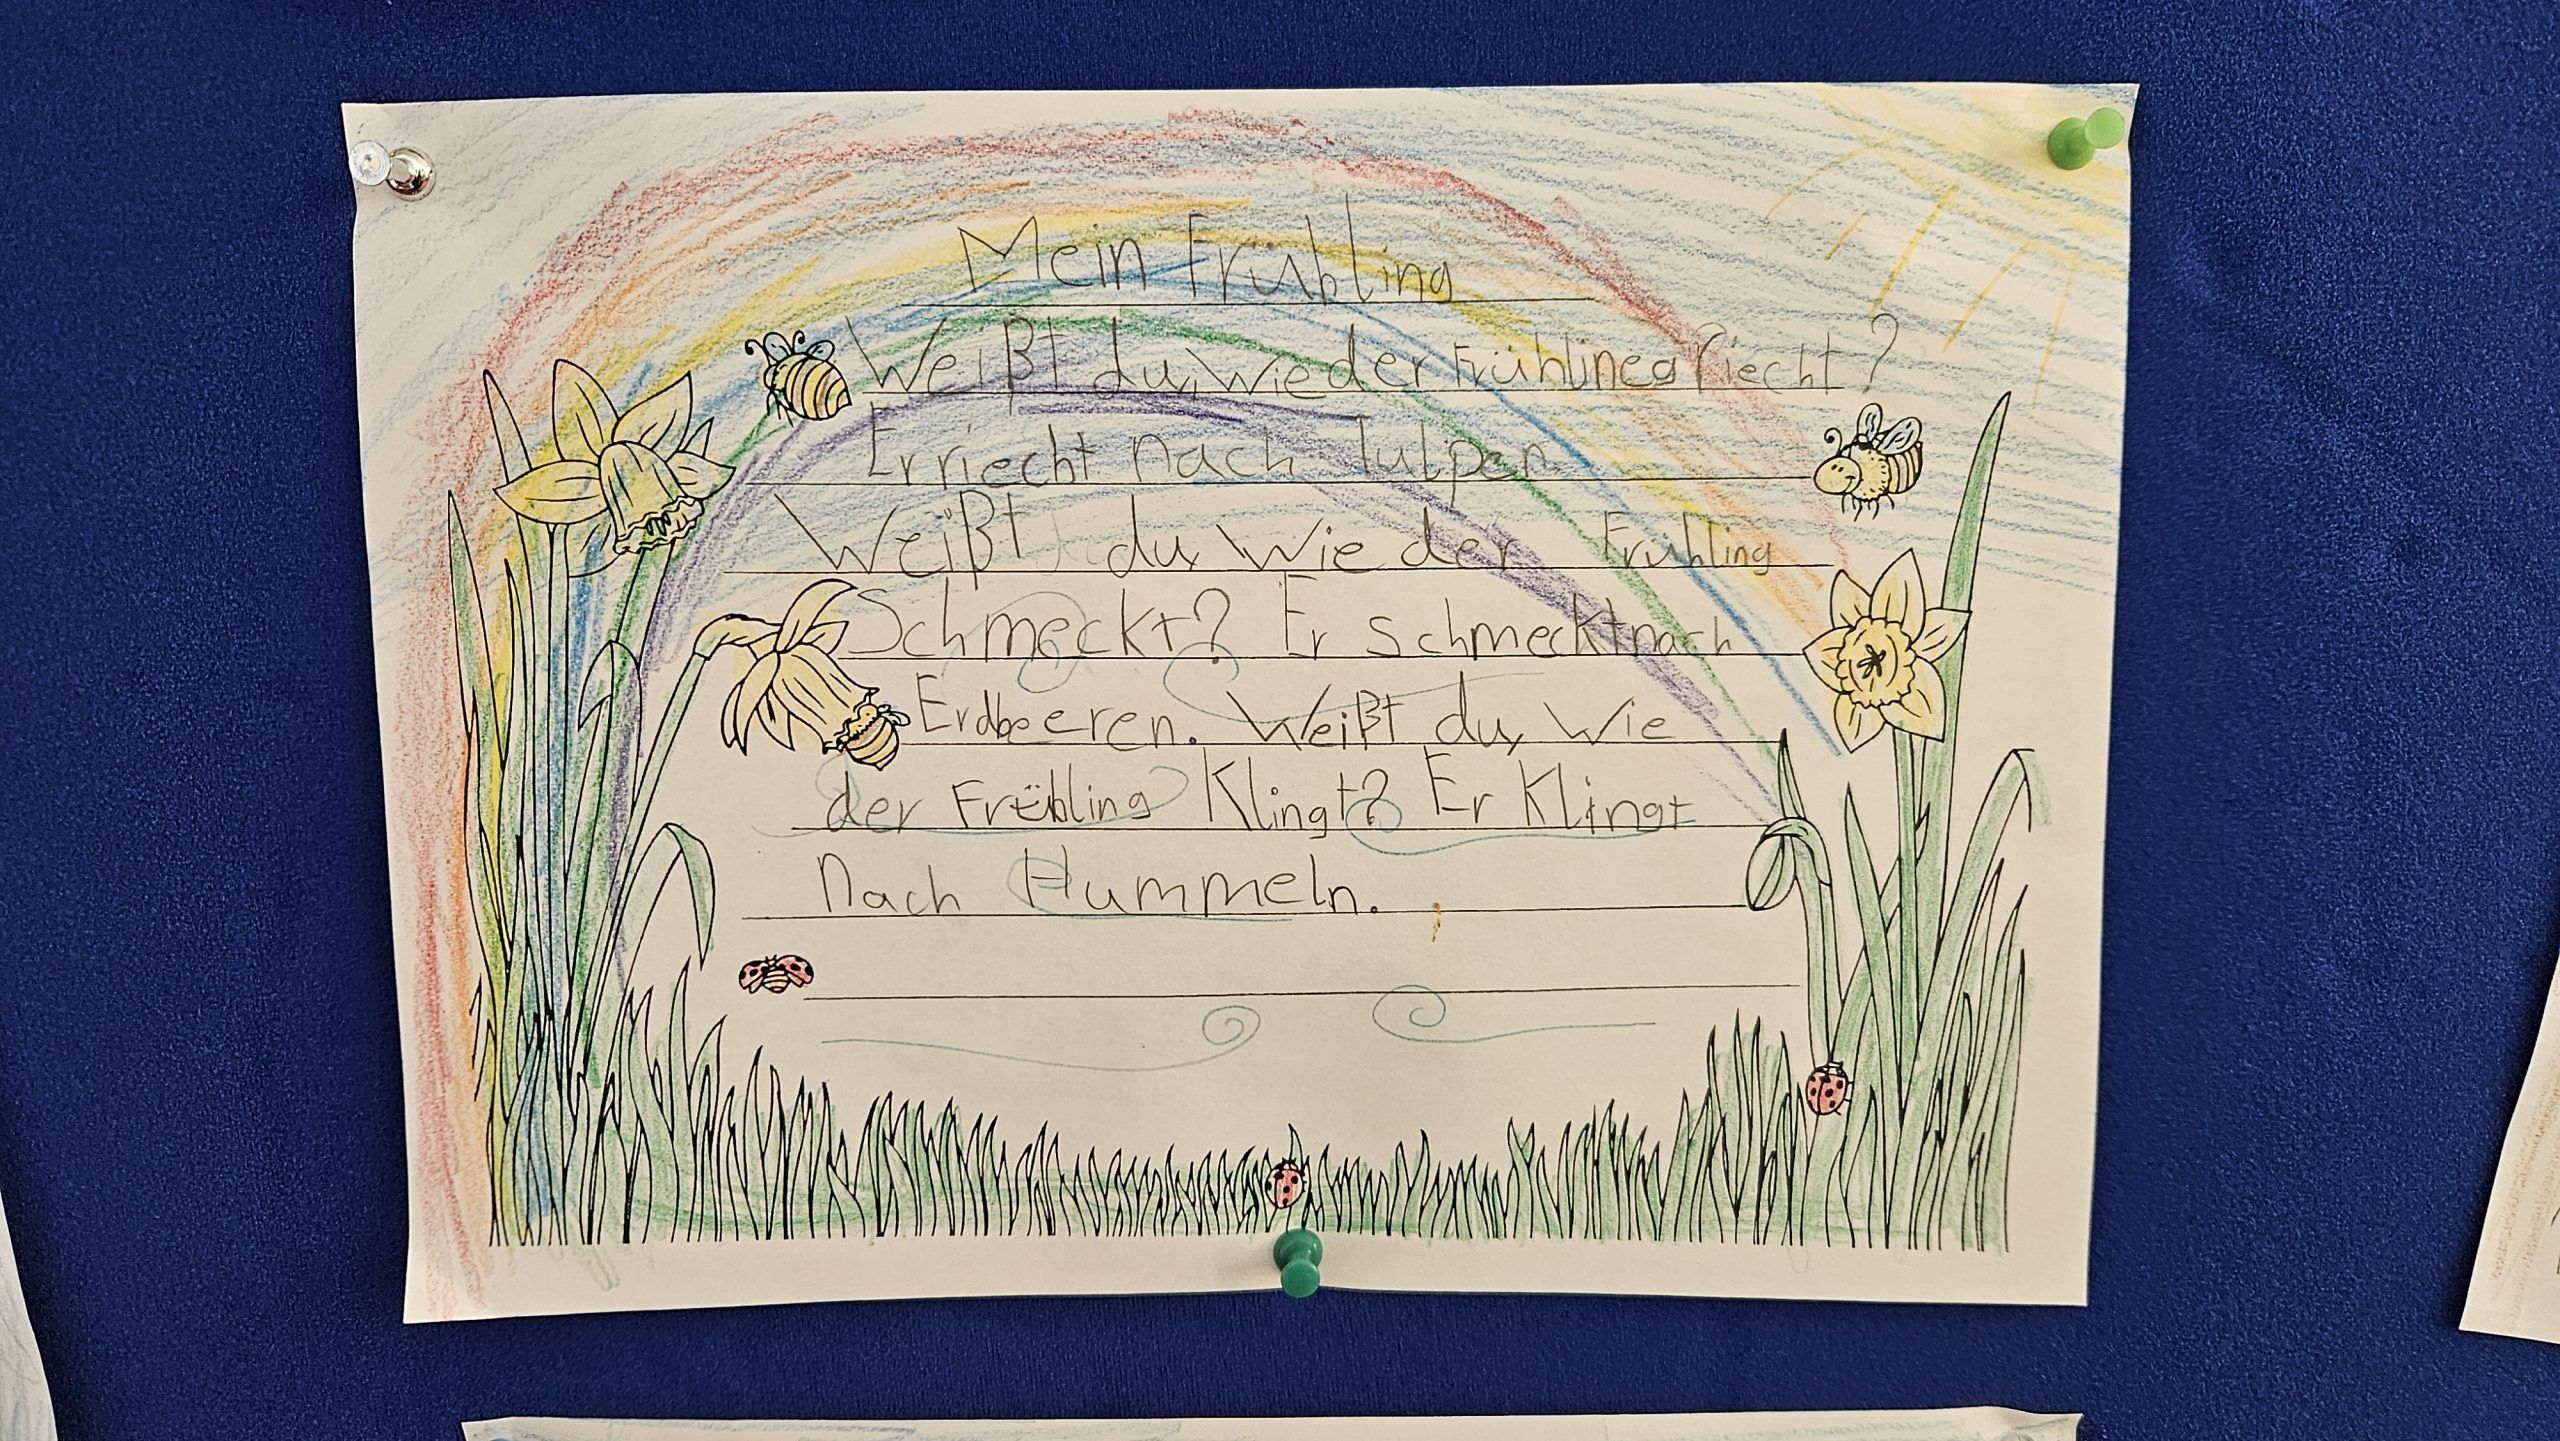 Mein Frühling
Weißt du, wie der Frühling riecht?
Er riecht nach Tulpen
Weißt du, wie der Frühling
Schmeckt? Er schmeckt nach
Erdbeeren. Weißt du, wie
der Frühling Klingt? Er Klingt
nach Hummeln.